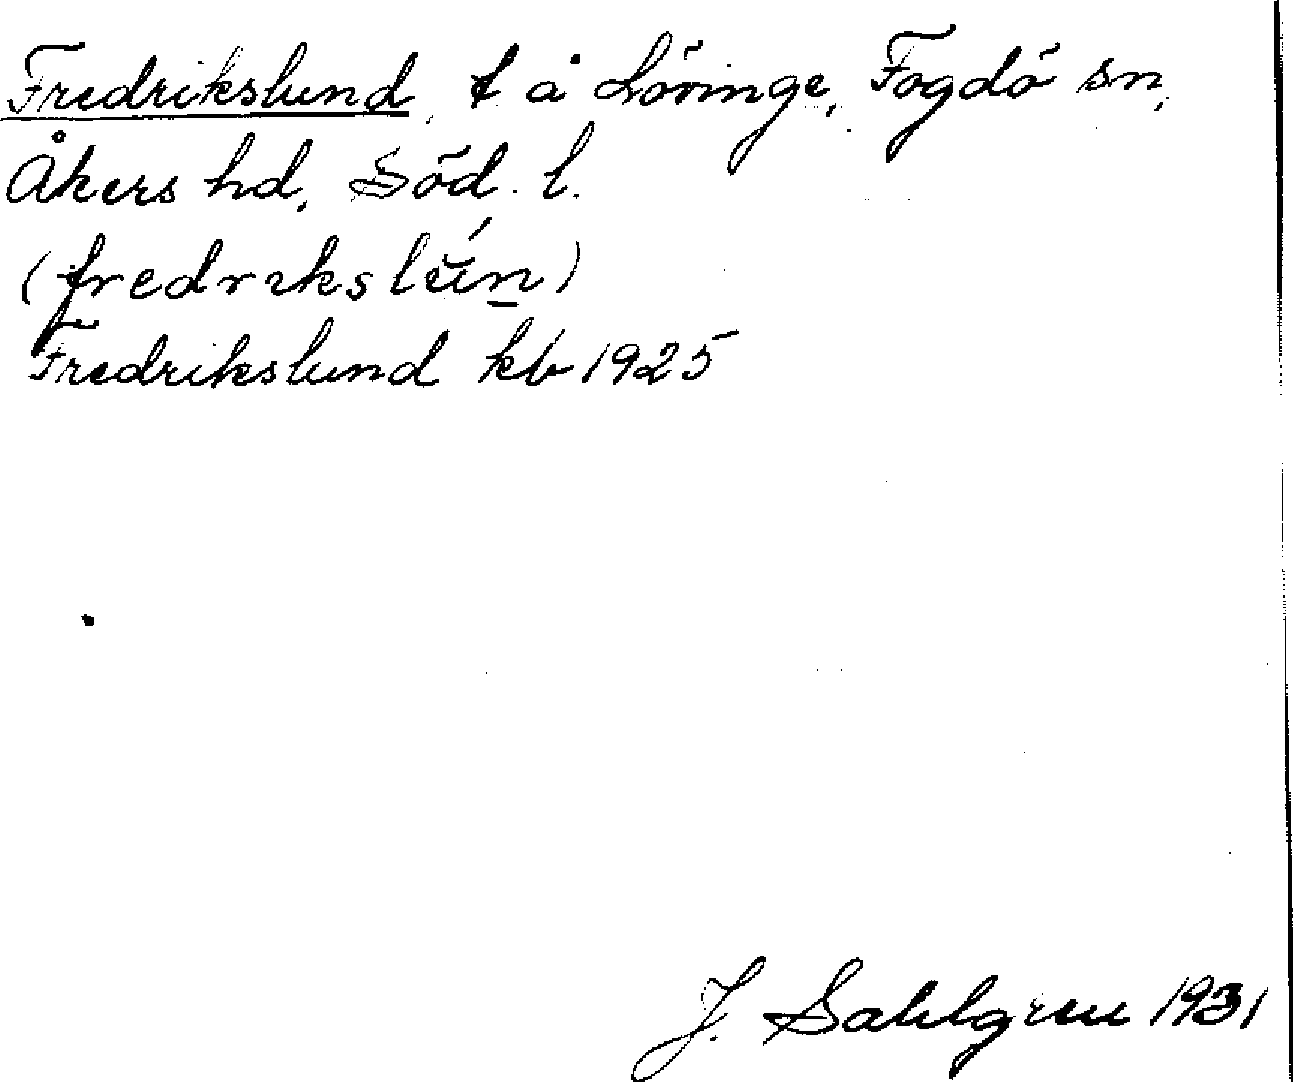 Fredrikslund, t å Lövinge, Fogdö sn,
Åkers hd, Söd. l.
(fredriksleín)
Fredrikslund kb 1925
J. Sahlgren 1931